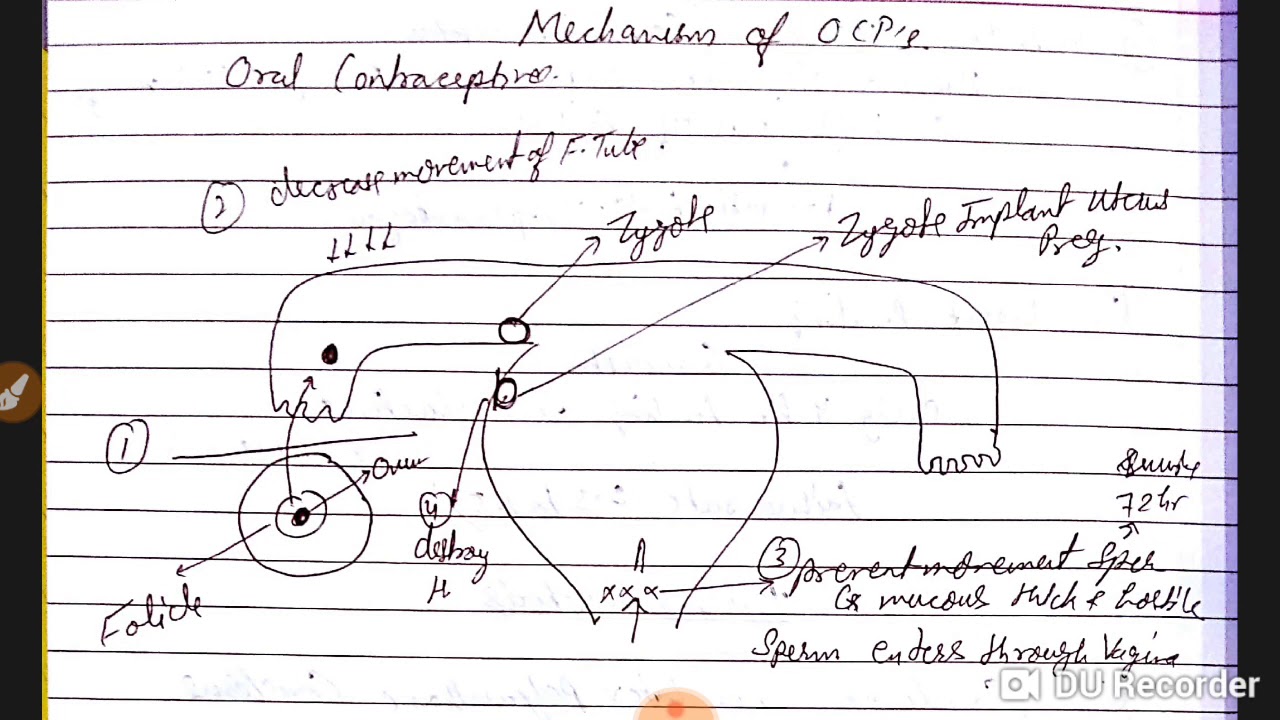 Mechanism of OCP's.
Oral Contraceptives.
② decrease movement of F.Tube.
Zygote
Zygote Implant Uterus
Preg.
①
Ovum
72 hr
④
destroy
it
③ prevent movement Sper
Cx mucous thick & hostile
Folicle
Sperm enters through Vagina
DU Recorder